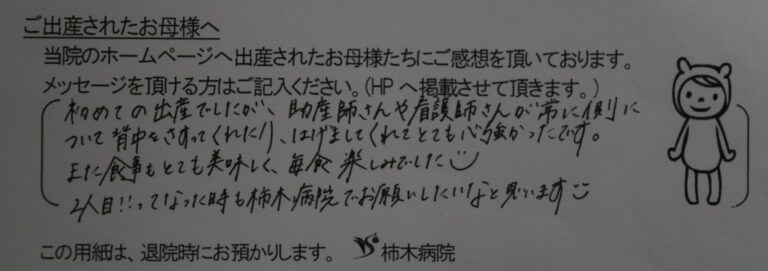 ご出産されたお母様へ
当院のホームページへ出産されたお母様たちにご感想を頂いております。
メッセージを頂ける方はご記入ください。(HPへ掲載させて頂きます。)
初めての出産でしたが、助産師さんや看護師さんが常に側に
ついて背中をさすってくれたり、はげましてくれてとても心強かったです。
また食事もとても美味しく、毎食楽しみでした
2人目!!ってなった時も柿木病院でお願いしたいなと思います
この用紙は、退院時にお預かりします。 柿木病院